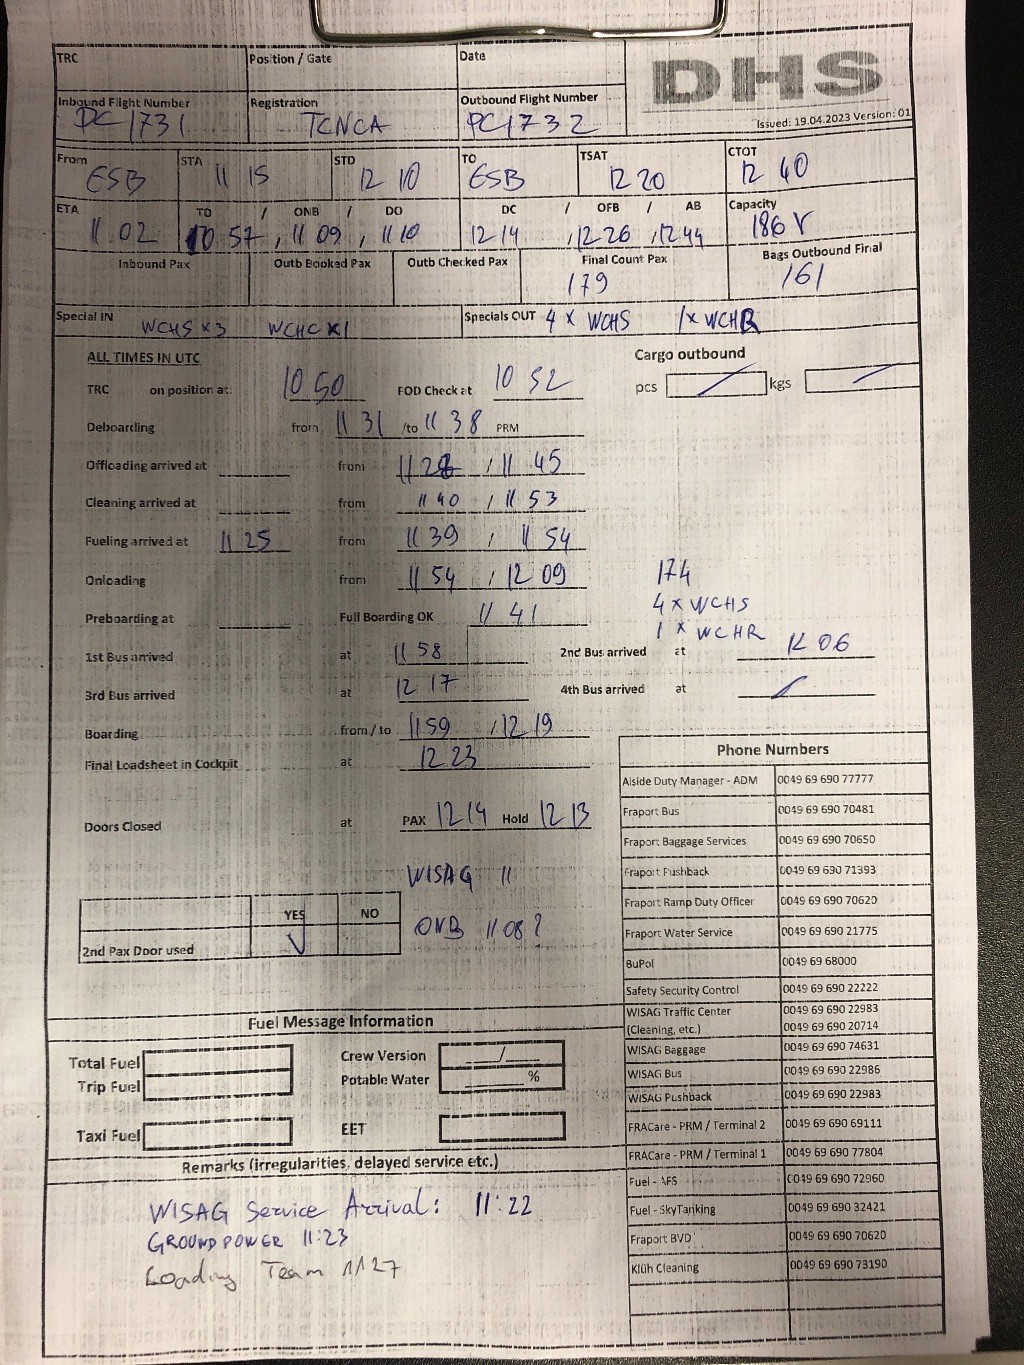 TRC Position / Gate Date
DHS
Inbound Flight Number Registration Outbound Flight Number
PC1731 TCNCA PC1732
Issued: 19.04.2023 Version: 01
From STA STD TO TSAT CTOT
ESB 11 15 12 10 ESB 12 20 12 40
ETA TD / ONB / DO DC / OFB / AB Capacity
11 02 10 57, 11 09, 11 10 12 14, 12 26, 12 44 186 Y
Inbound Pax Outb Booked Pax Outb Checked Pax Final Count Pax Bags Outbound Final
179 161
Special IN WCHS x3 WCHC x1 Specials OUT 4 x WCHS 1x WCHR
ALL TIMES IN UTC Cargo outbound
TRC on position at: 10 50 FOD Check at 10 52 pcs kgs
Deboarding from 11 31 /to 11 38 PRM
Offloading arrived at from 11 28 / 11 45
Cleaning arrived at from 11 40 / 11 53
Fueling arrived at 11 25 from 11 39 / 11 54
Onloading from 11 54 / 12 09 174
4 x WCHS
Preboarding at Full Boarding OK 11 41
1 x WCHR
1st Bus arrived at 11 58 2nd Bus arrived at 12 06
3rd Bus arrived at 12 17 4th Bus arrived at
Boarding from / to 11 59 / 12 19
Final Loadsheet in Cockpit at 12 23
Doors Closed at PAX 12 14 Hold 12 13
WISAG 11
YES NO
ONB 11 08?
2nd Pax Door used
Phone Numbers
Aiside Duty Manager - ADM 0049 69 690 77777
Fraport Bus 0049 69 690 70481
Fraport Baggage Services 0049 69 690 70650
Fraport Pushback 0049 69 690 71393
Fraport Ramp Duty Officer 0049 69 690 70620
Fraport Water Service 0049 69 690 21775
BuPol 0049 69 68000
Safety Security Control 0049 69 690 22222
WISAG Traffic Center 0049 69 690 22983
(Cleaning, etc.) 0049 69 690 20714
WISAG Baggage 0049 69 690 74631
WISAG Bus 0049 69 690 22986
WISAG Pushback 0049 69 690 22983
FRACare - PRM / Terminal 2 0049 69 690 69111
FRACare - PRM / Terminal 1 0049 69 690 77804
Fuel - AFS 0049 69 690 72960
Fuel - SkyTanking 0049 69 690 32421
Fraport BVD 0049 69 690 70620
Klüh Cleaning 0049 69 690 73190
Fuel Message Information
Total Fuel Crew Version /
Trip Fuel Potable Water %
Taxi Fuel EET
Remarks (irregularities, delayed service etc.)
WISAG Service Arrival: 11:22
GROUND POWER 11:23
Loading Team 1127